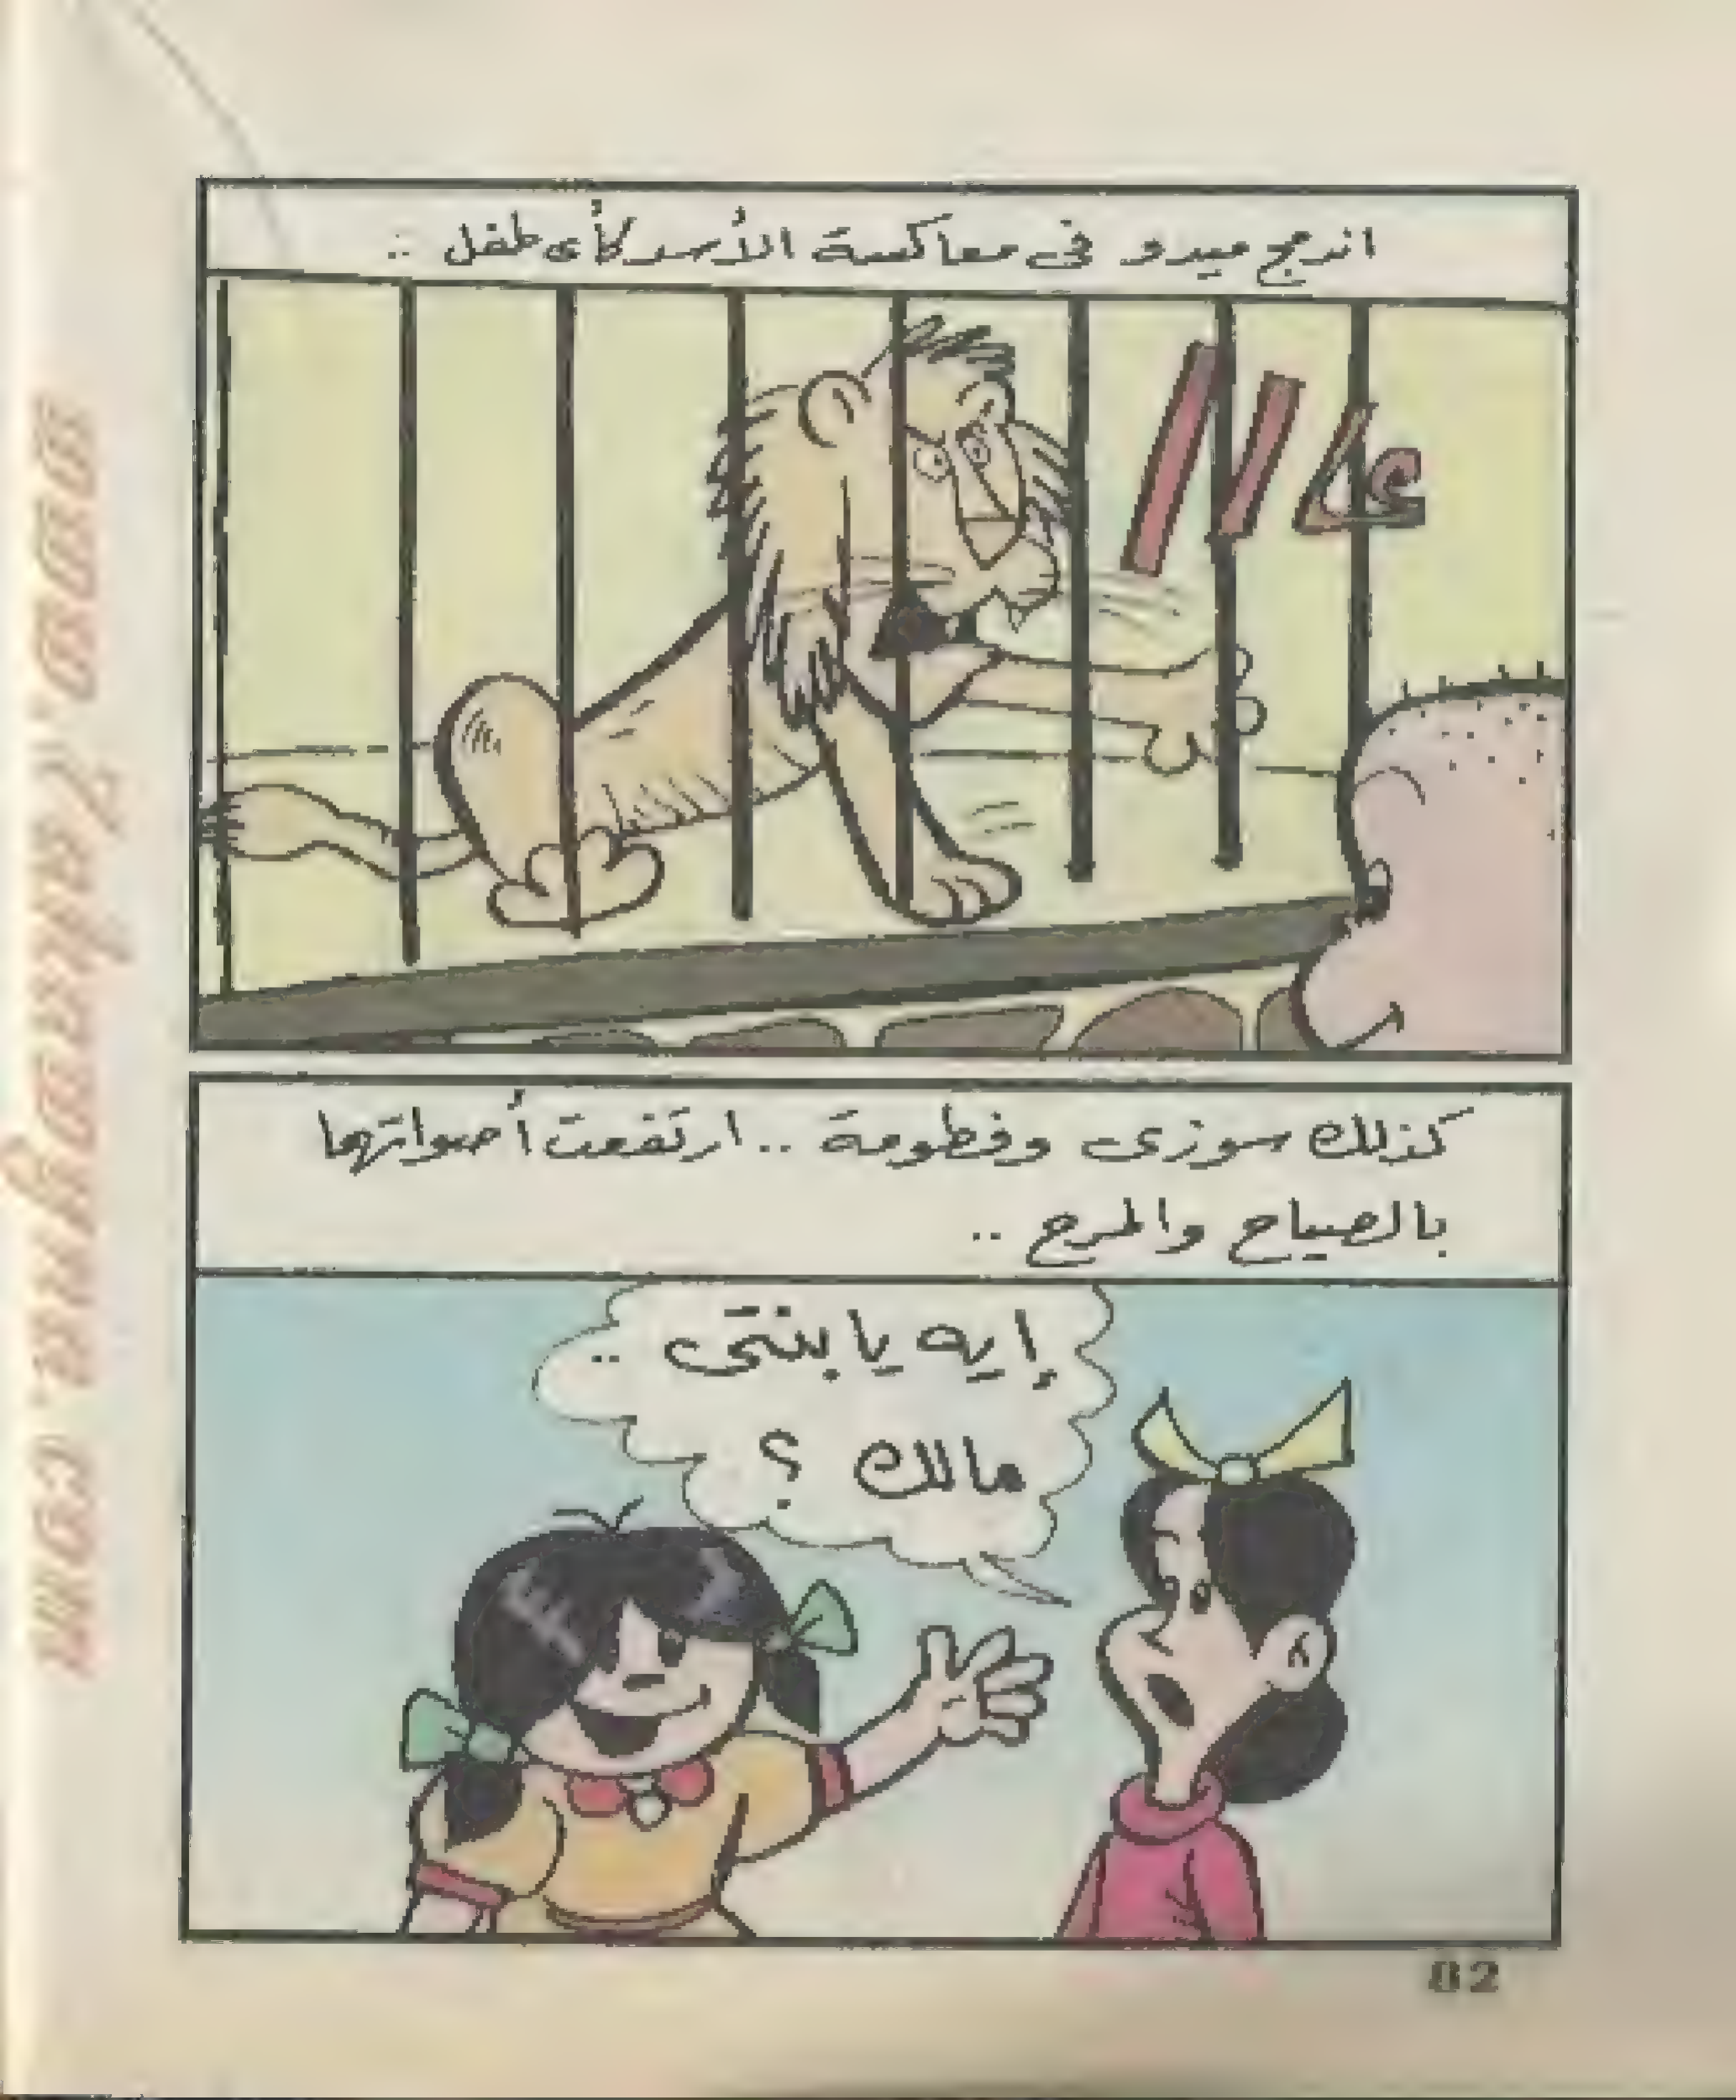 اندمج ميدو فى معاكسة الأسد كأى طفل ..
كذلك سوزى وفطومة .. ارتفعت أصواتهما
بالصياح والمرح ..
إيه يا بنتى ..
مالك ؟
82